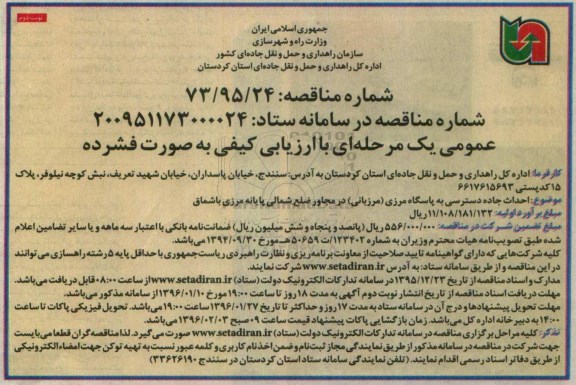 نوبت دوم
جمهوری اسلامی ایران
وزارت راه و شهرسازی
سازمان راهداری و حمل و نقل جاده‌ای کشور
اداره کل راهداری و حمل و نقل جاده‌ای استان کردستان
شماره مناقصه: ۷۳/۹۵/۲۴
شماره مناقصه در سامانه ستاد: ۲۰۰۹۵۱۱۷۳۰۰۰۰۲۴
عمومی یک مرحله‌ای با ارزیابی کیفی به صورت فشرده
کارفرما: اداره کل راهداری و حمل و نقل جاده‌ای استان کردستان به آدرس: سنندج، خیابان پاسداران، خیابان شهید تعریف، نبش کوچه نیلوفر، پلاک
۱۵ کدپستی ۶۶۱۷۶۱۵۶۹۳
موضوع: احداث جاده دسترسی به پاسگاه مرزی (مرزبانی) در مجاور ضلع شمالی پایانه مرزی باشماق
مبلغ برآورد اولیه: ۱۱/۱۰۸/۱۸۱/۱۳۲ ریال
مبلغ تضمین شرکت در مناقصه: ۵۵۶/۰۰۰/۰۰۰ ریال (پانصد و پنجاه و شش میلیون ریال) ضمانت‌نامه بانکی با اعتبار سه ماهه و یا سایر تضامین اعلام
شده طبق تصویب‌نامه هیات محترم وزیران به شماره ۱۲۳۴۰۲/ت۵۰۶۵۹هـ مورخ ۱۳۹۴/۰۹/۳۰ می‌باشد.
کلیه شرکت‌هایی که دارای گواهینامه تایید صلاحیت از معاونت برنامه‌ریزی و نظارت راهبردی ریاست جمهوری با حداقل پایه ۵ رشته راهسازی می‌توانند
در این مناقصه و از طریق سامانه ستاد: به آدرس www.setadiran.ir شرکت نمایند.
مدارک و اسناد مناقصه از تاریخ ۱۳۹۵/۱۲/۲۳ در سامانه تدارکات الکترونیک دولت (ستاد) www.setadiran.ir از ساعت ۰۸:۰۰ قابل دریافت می‌باشد.
مهلت دریافت اسناد مناقصه از تاریخ انتشار نوبت دوم آگهی به مدت ۱۸ روز تا ساعت ۱۹:۰۰ مورخ ۱۳۹۶/۰۱/۱۰ از سامانه مذکور می‌باشد.
مهلت تحویل پیشنهادها و درج آن در سامانه ستاد به مدت ۱۷ روز و حداکثر تا تاریخ ۱۳۹۶/۰۱/۲۷ تا ساعت ۱۹:۰۰ می‌باشد. تحویل فیزیکی پاکات تا ساعت
۱۴:۰۰ به دبیرخانه اداره کل می‌باشد. زمان بازگشایی پاکات پیشنهاد قیمت ساعت ۰۹ صبح ۱۳۹۶/۰۲/۰۳ می‌باشد.
تذکر: کلیه مراحل برگزاری مناقصه در سامانه تدارکات الکترونیک دولت (ستاد) www.setadiran.ir صورت می‌گیرد. لذا مناقصه‌گران قطعا می‌بایست
جهت شرکت در مناقصه در سامانه مذکور از طریق نمایندگی مجاز ثبت‌نام و ضمن اخذ نام کاربری و کلمه عبور نسبت به تهیه توکن جهت امضاء الکترونیکی
از طریق دفاتر اسناد رسمی اقدام نمایند. (تلفن نمایندگی سامانه ستاد استان کردستان در سنندج ۳۳۶۲۶۱۹۰)